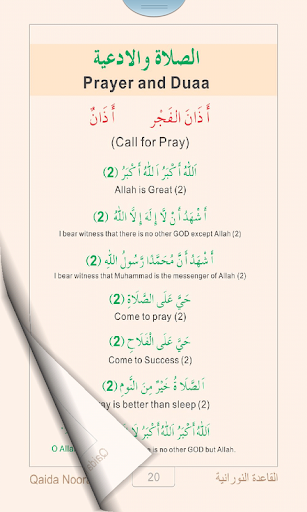 الصلاة والادعية
Prayer and Duaa
أَذَانَ الْفَجْر أَذَانٌ
(Call for Pray)
اَللهُ أَكْبَرُ اَللهُ أَكْبَرُ (2)
Allah is Great (2)
أَشْهَدُ أَنْ لَّا إِلَهَ إِلَّا اللهُ (2)
I bear witness that there is no other GOD except Allah (2)
أَشْهَدُ أَنَّ مُحَمَّدًا رَّسُولُ اللهِ (2)
I bear witness that Muhammad is the messenger of Allah (2)
حَيَّ عَلَى الصَّلَاةِ (2)
Come to pray (2)
حَيَّ عَلَى الْفَلَاحِ (2)
Come to Success (2)
اَلصَّلَاةُ خَيْرٌ مِنَ النَّومِ (2)
ayer is better than sleep (2)
اَللهُ أَكْبَرُ اَللهُ أَكْبَرُ لَا
O Alla e is no other GOD but Allah.
Qaida Noor 20 القاعدة النورانية
Qaida